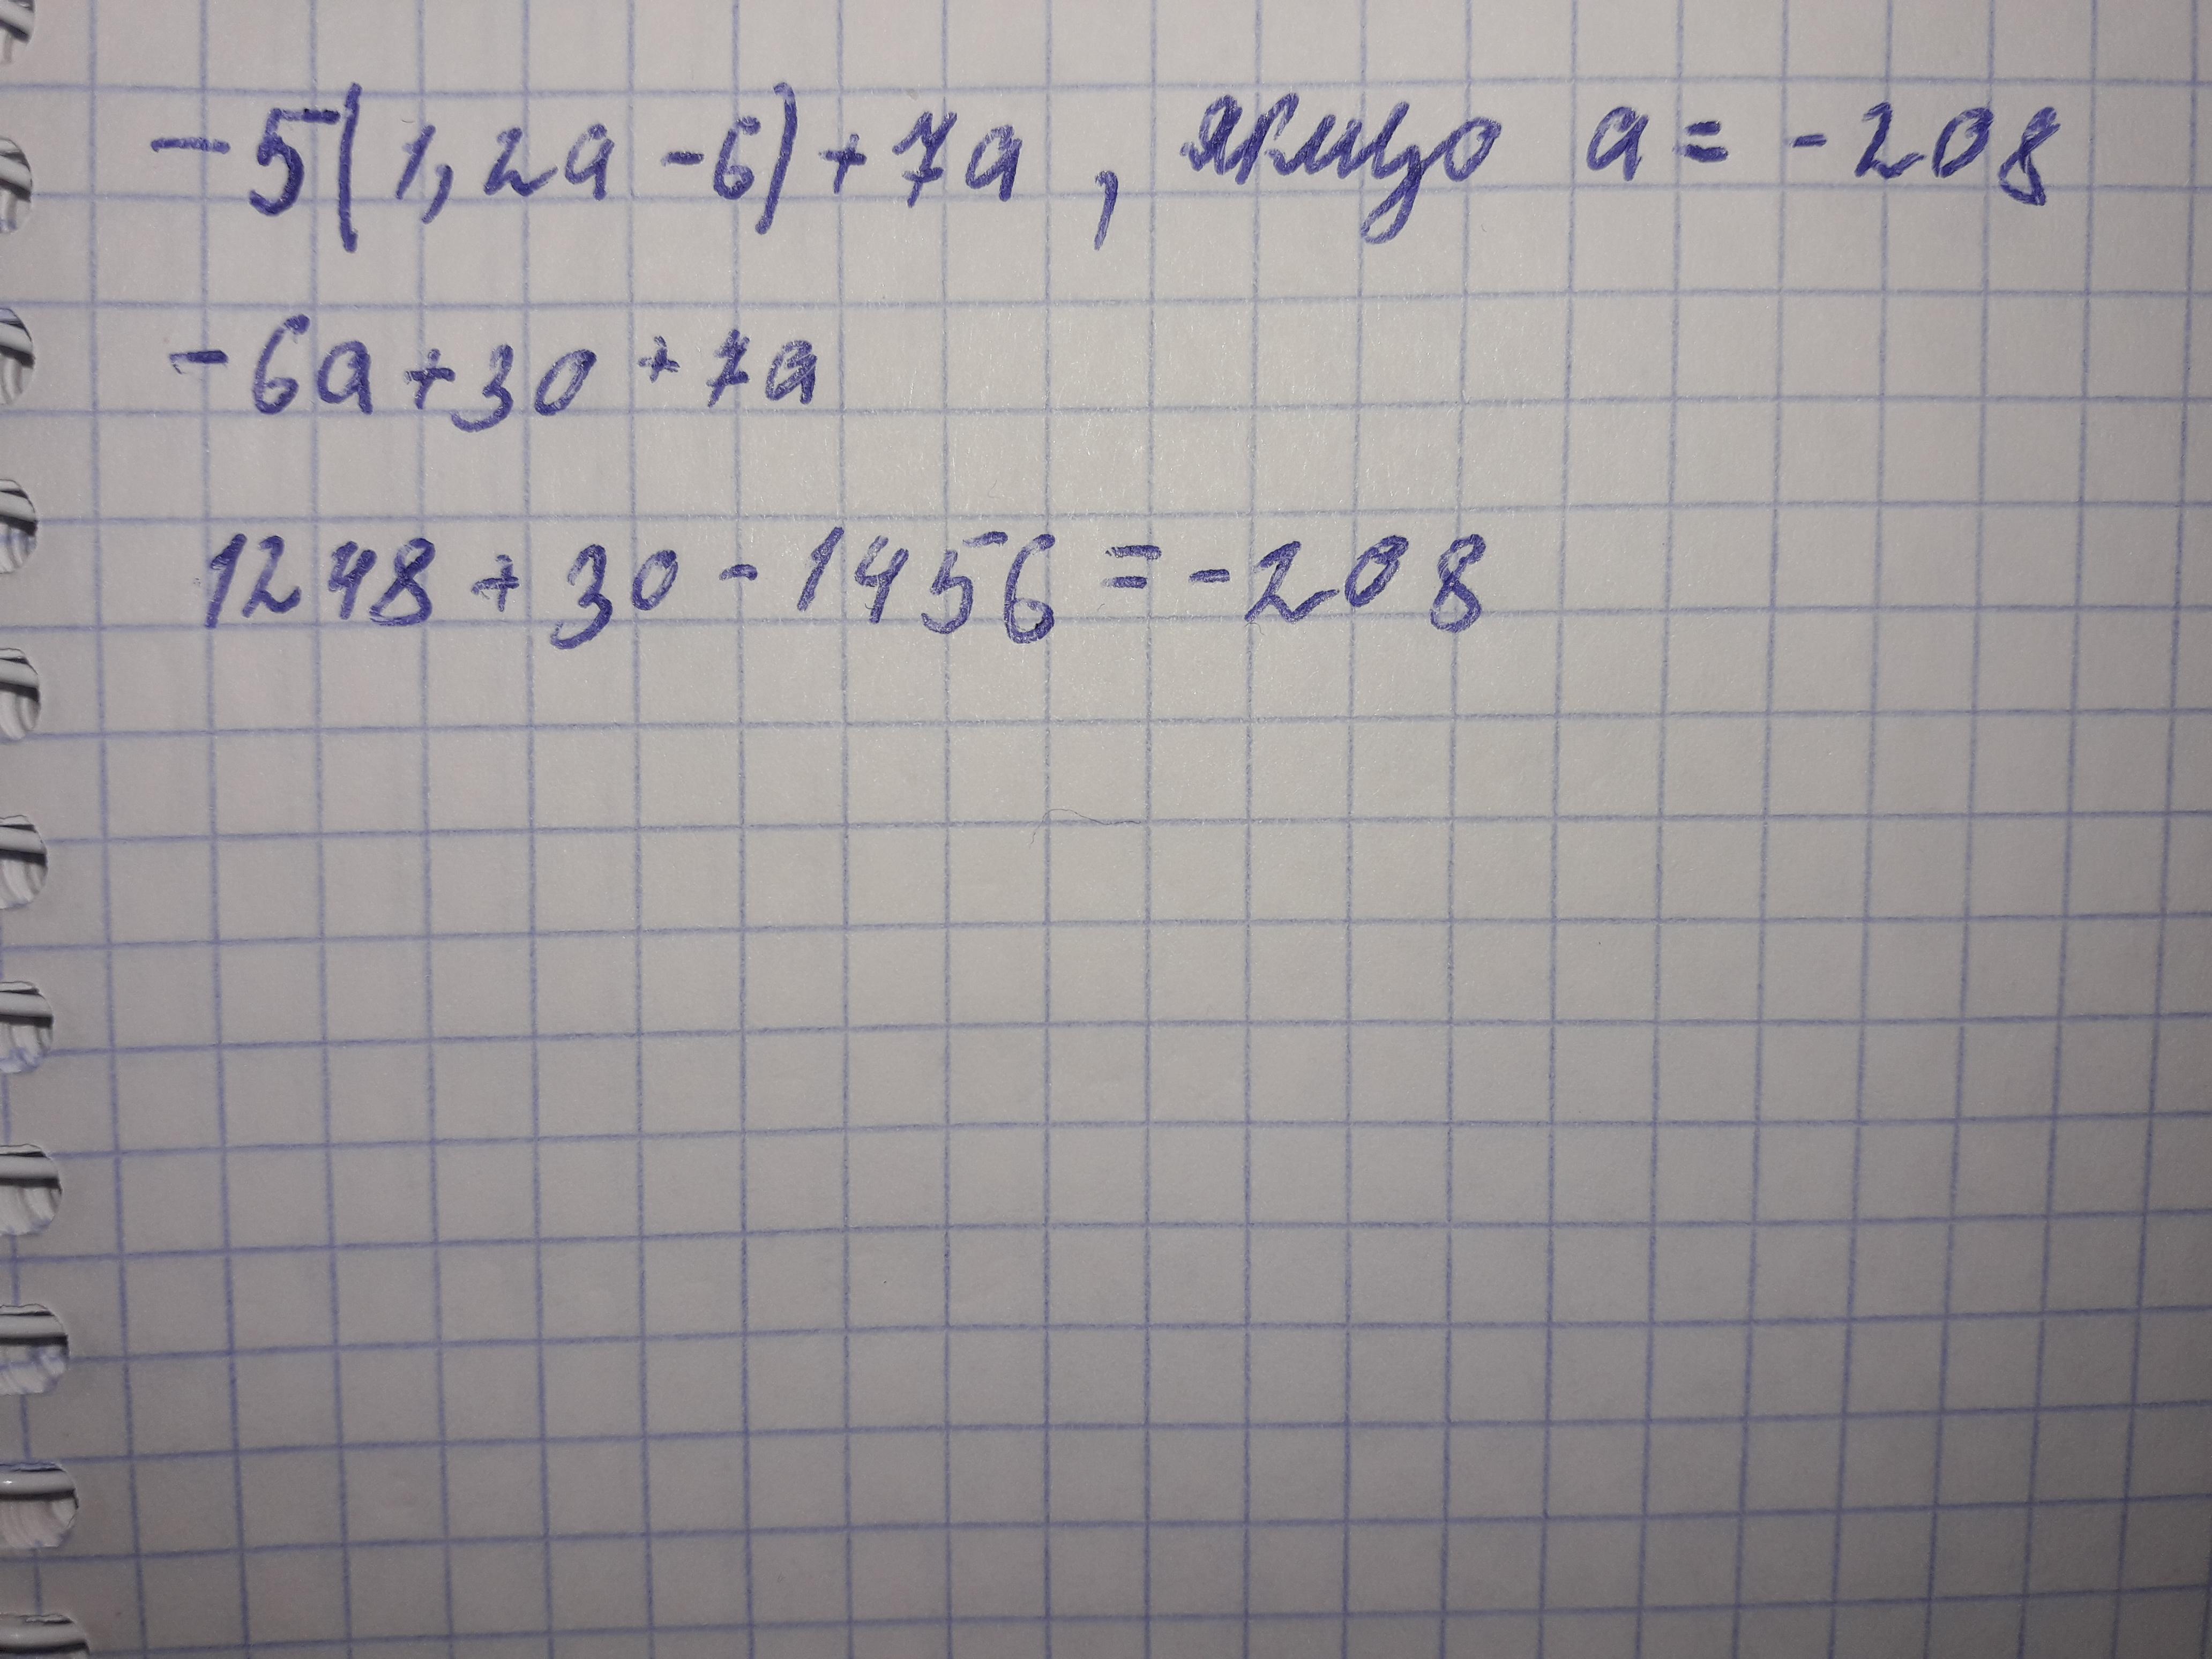 -5(1,2a-6)+7a, якщо a=-208
-6a+30+7a
1248+30-1456=-208